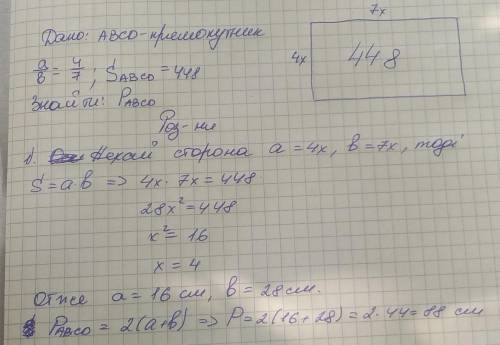 7x
Дано: АВСО-прямокутник
4x 448
a/b = 4/7 ; SABCO = 448
Знайти: PABCO
Роз-ня
1. Нехай сторона a = 4x, b = 7x, тоді
S = a·b => 4x · 7x = 448
28x² = 448
x² = 16
x = 4
Отже a = 16 см, b = 28 см.
PABCO = 2(a+b) => P = 2(16+28) = 2·44 = 88 см